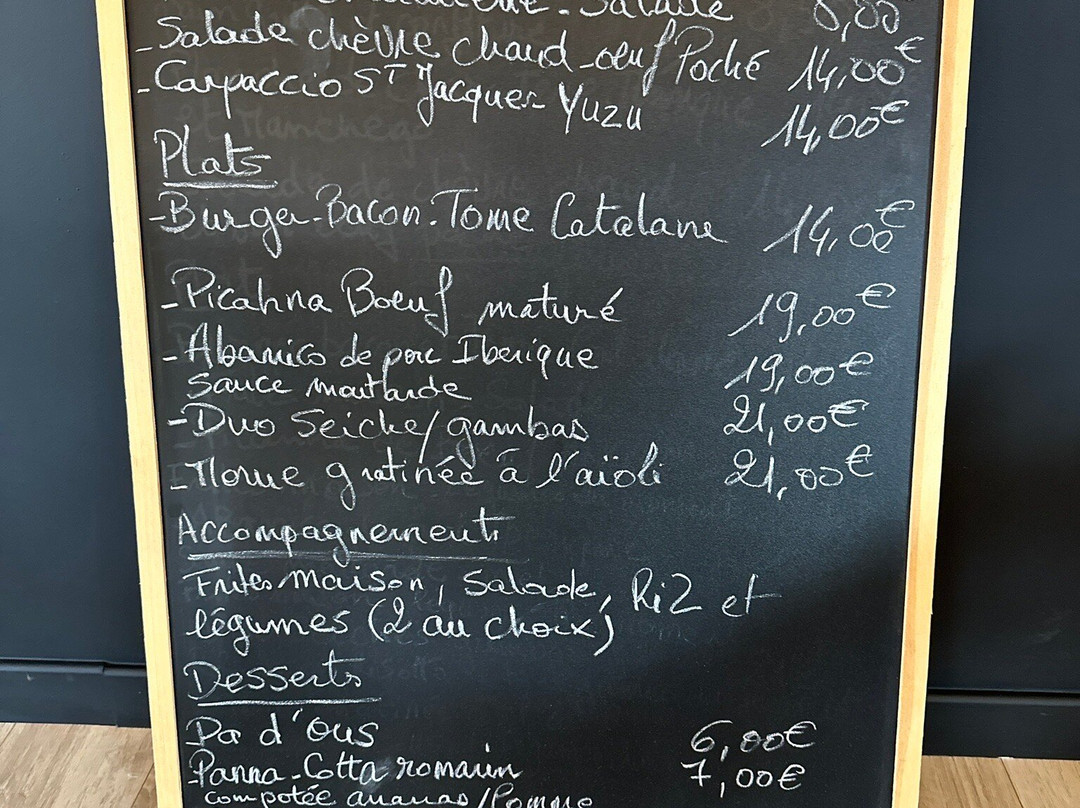 Salade 8,00
- Salade chèvre chaud - œuf Poché 14,00€
- Carpaccio ST Jacques Yuzu 14,00€
Plats
- Burger - Bacon - Tome Catalane 14,00€
- Picahna Boeuf maturé 19,00€
- Abanico de porc Iberique 19,00€
Sauce moutarde
- Duo Seiche/gambas 21,00€
- Morue gratinée à l'aïoli 21,00€
Accompagnements
Frites maison, Salade, Riz et
légumes (2 au choix)
Desserts
Pa d'Ous 6,00€
- Panna-Cotta romarin 7,00€
compotée ananas/Pomme